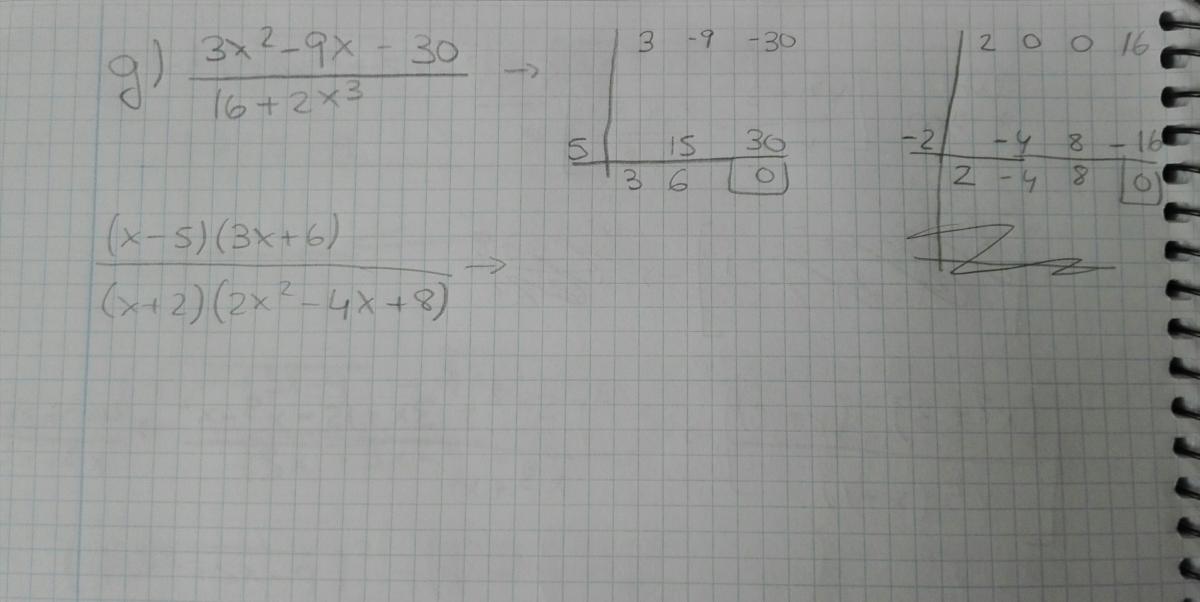 g) 3x² - 9x - 30 →
16 + 2x³
3 -9 -30
5 15 30
3 6 0
2 0 0 16
-2 -4 8 -16
2 -4 8 0
(x-5)(3x+6) →
(x+2)(2x² - 4x + 8)